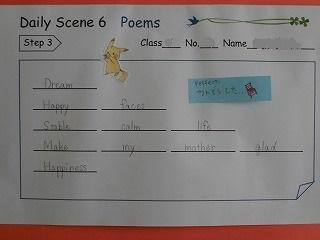 Daily Scene 6 Poems
Step 3 Class No. Name
Dream
Perfect!
Happy faces
Stable calm life
Make my mother glad
Happiness